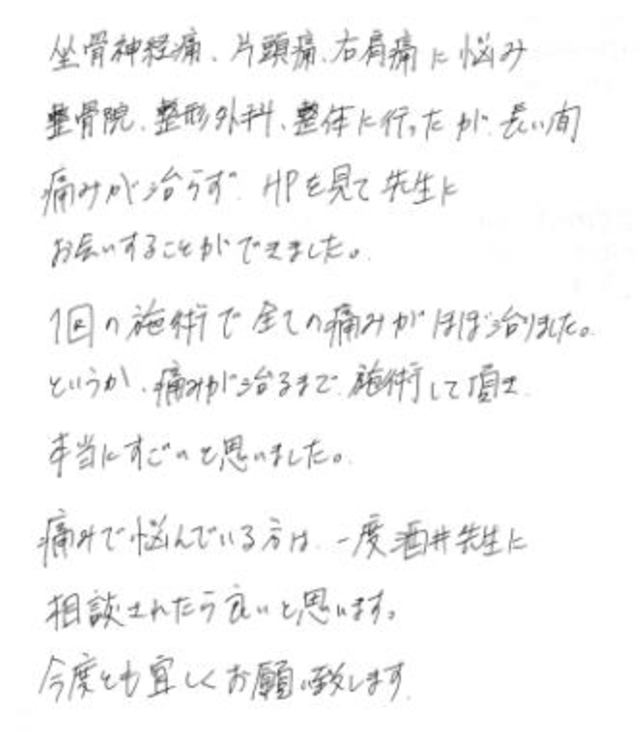 坐骨神経痛、片頭痛、右肩痛に悩み
整骨院、整形外科、整体に行ったが、長い間
痛みが治らず、HPを見て先生に
お会いすることができました。
1回の施術で全ての痛みがほぼ治りました。
というか、痛みが治るまで、施術して頂き
本当にすごいと思いました。
痛みで悩んでいる方は、一度酒井先生に
相談されたら良いと思います。
今度とも宜しくお願い致します。